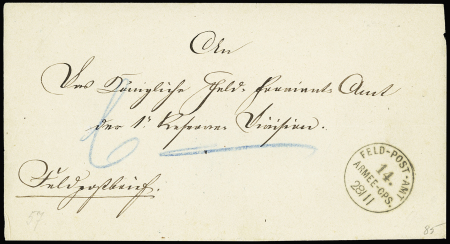 An
Das Königliche Feld-Proviant-Amt
der 1t Reserve-Division.
Feldpostbrief.
FELD-POST-AMT
14.
ARMEE-CPS.
28/11
85